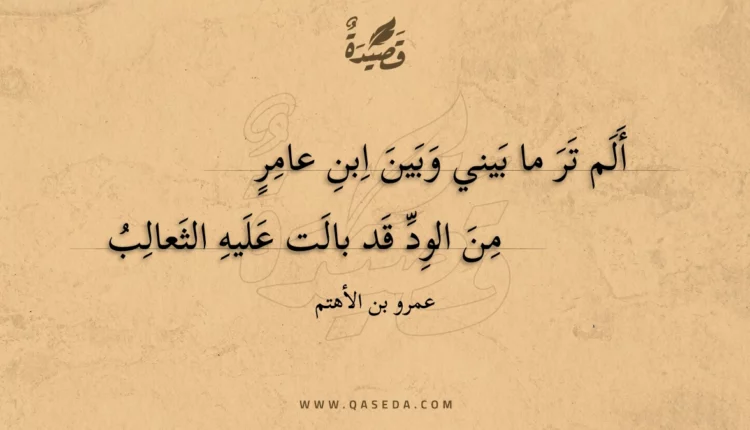 قَصِيْدَةٌ
أَلَم تَرَ ما بَيني وَبَينَ اِبنِ عامِرٍ
مِنَ الوِدِّ قَد بالَت عَلَيهِ الثَعالِبُ
عمرو بن الأهتم
WWW.QASEDA.COM